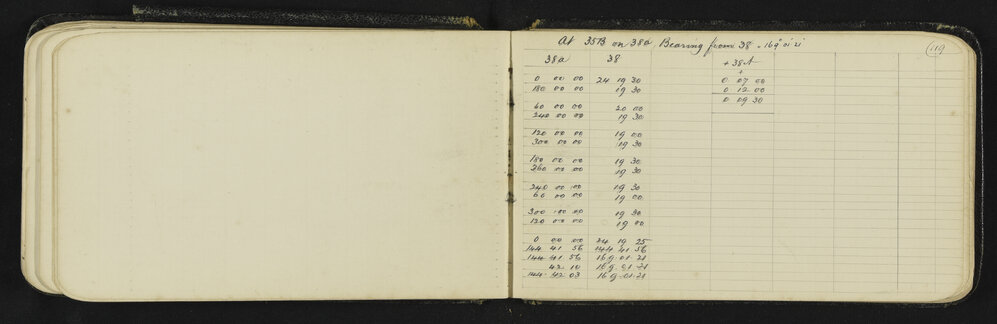 At 35B on 38a, Bearing from 38 = 169° 01' 21
119
38a 38 + 38A
+
0 00 00 24 19 30 0 07 00
180 00 00 19 30 0 12 00
0 09 30
60 00 00 20 00
240 00 00 19 30
120 00 00 19 00
300 00 00 19 30
180 00 00 19 30
360 00 00 19 30
240 00 00 19 30
60 00 00 19 00
300 00 00 19 30
120 00 00 19 00
0 00 00 24 19 25
144 41 56 144 41 56
144 41 56 169 01 21
42 10 169 01 21
144 42 03 169 01 21